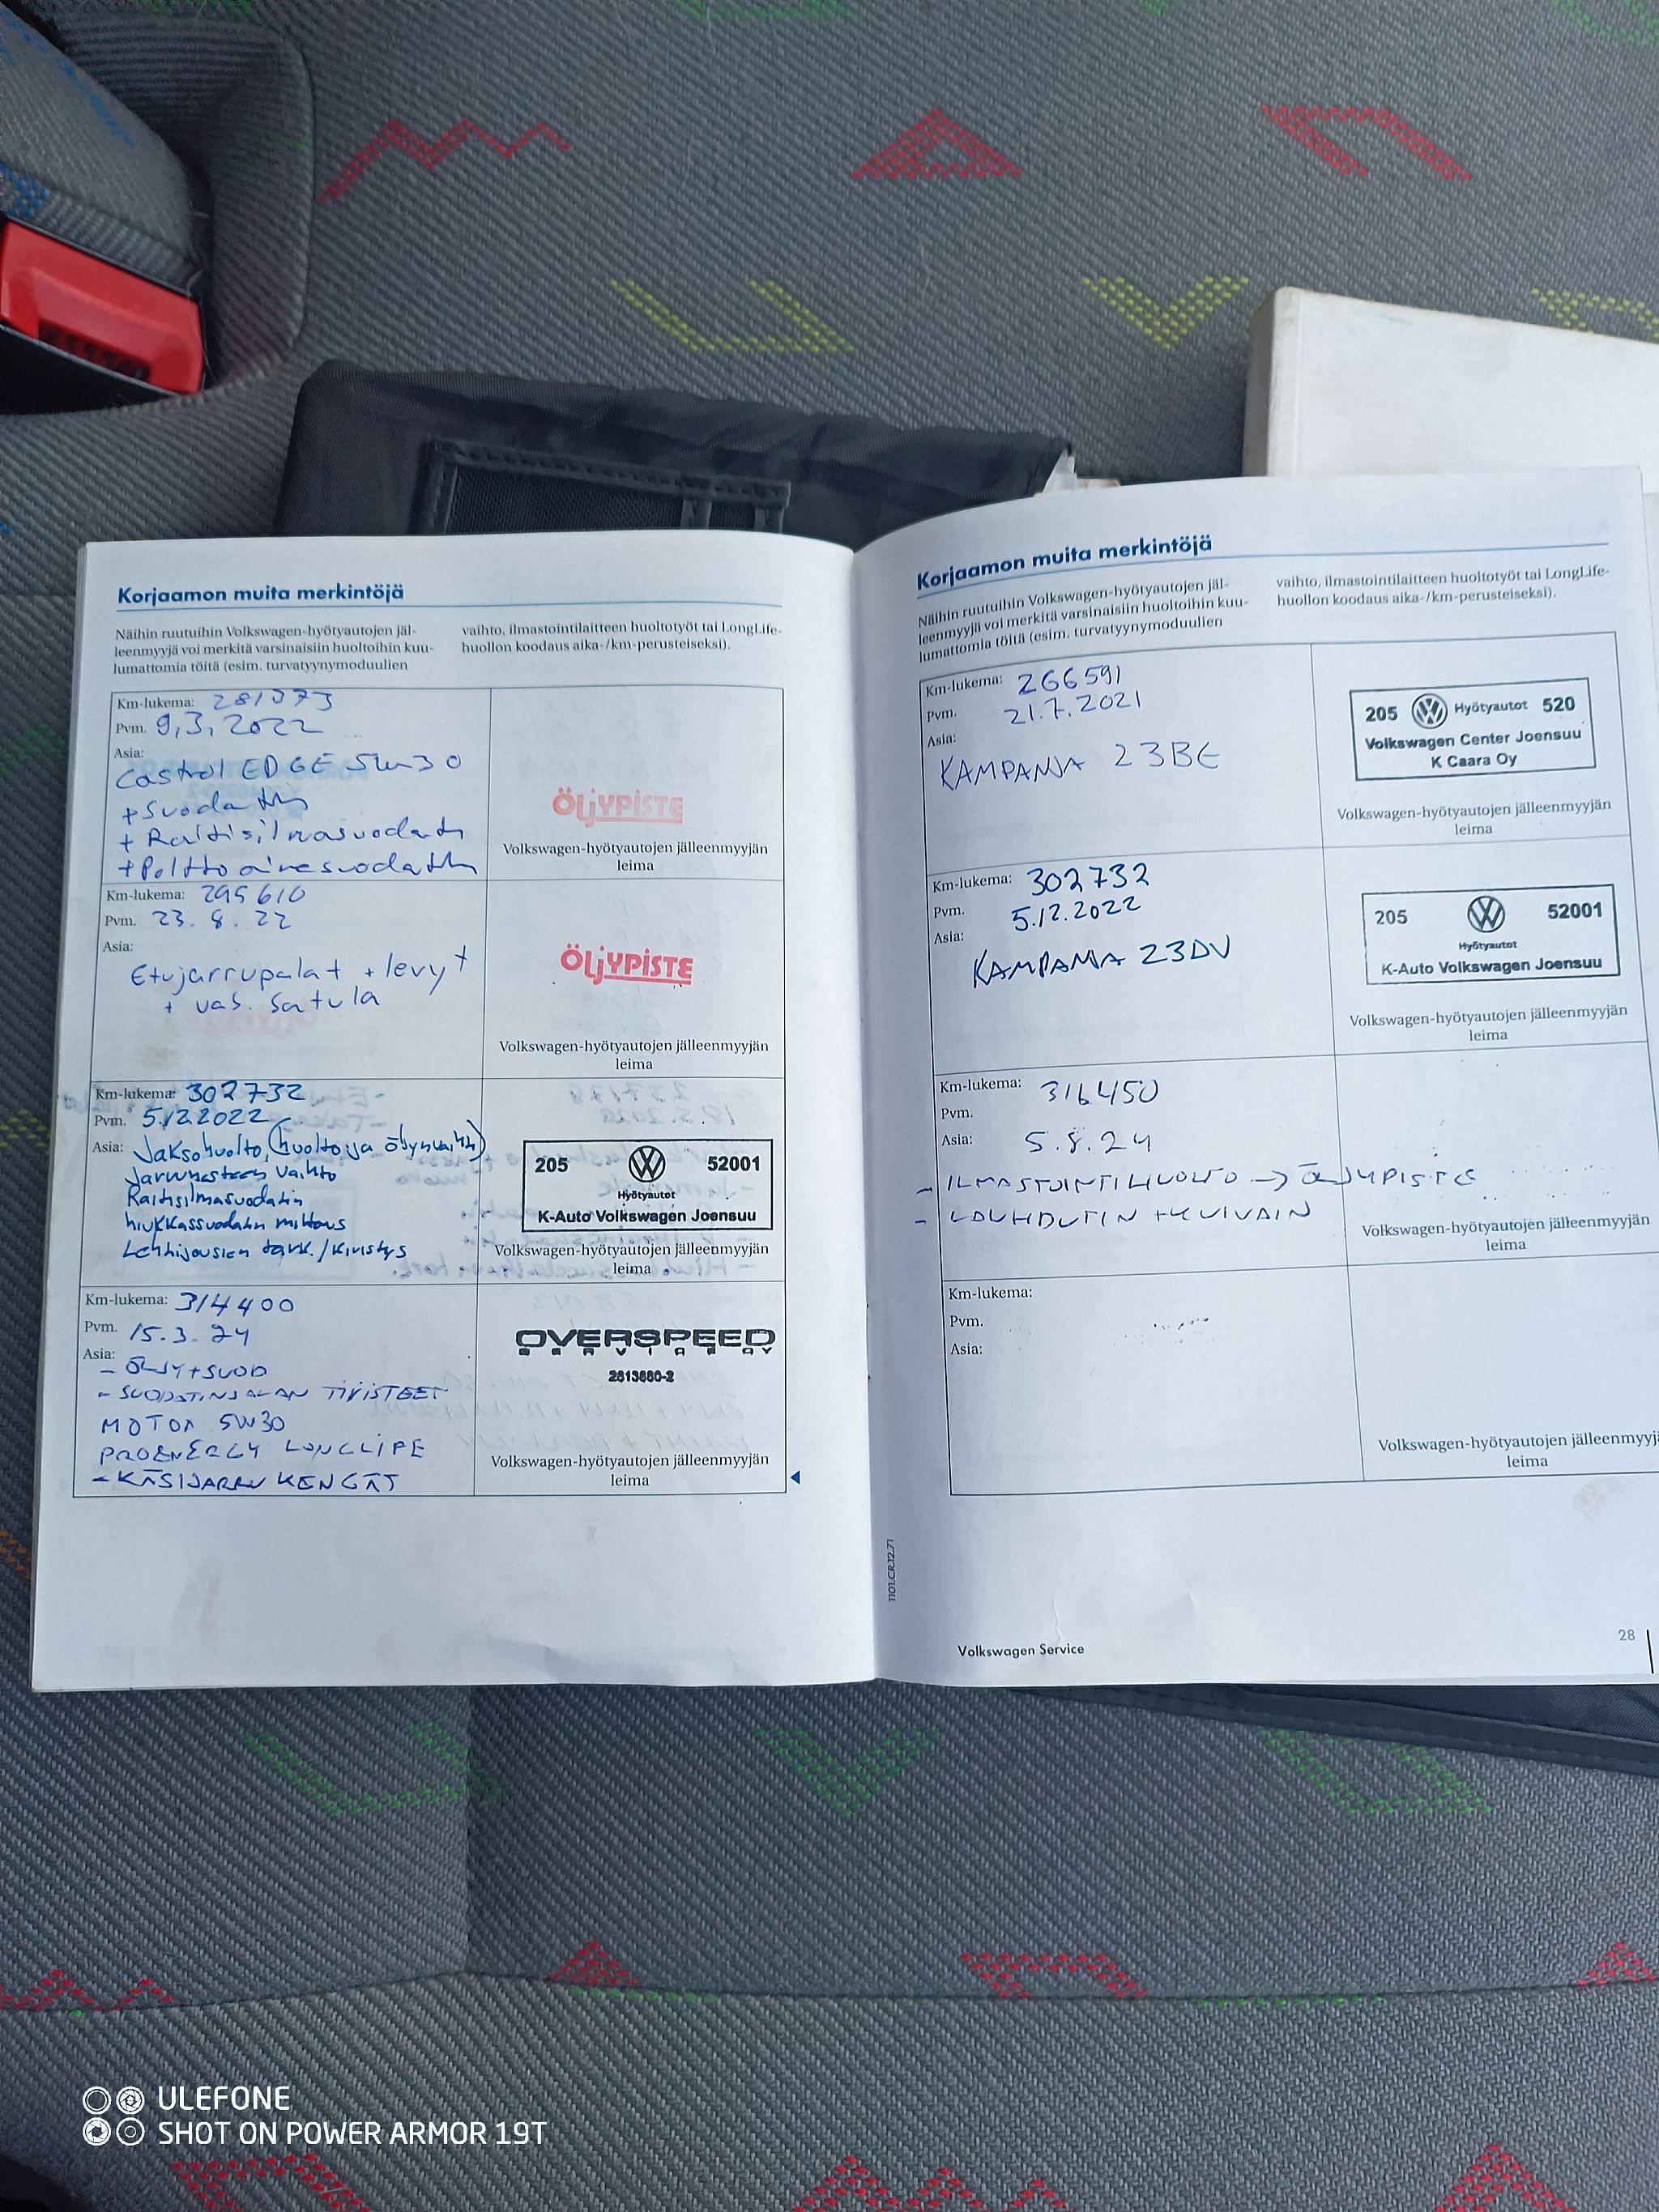 Korjaamon muita merkintöjä
Näihin ruutuihin Volkswagen-hyötyautojen jäl-
leenmyyjä voi merkitä varsinaisiin huoltoihin kuu-
lumattomia töitä (esim. turvatyynymoduulien
vaihto, ilmastointilaitteen huoltotyöt tai LongLife-
huollon koodaus aika-/km-perusteiseksi).
Km-lukema: 281073
Pvm. 9.3.2022
Asia:
Castrol EDGE 5w30
+ Suodatin
+ Raitisilmasuodatin
+ Polttoainesuodatin
ÖLJYPISTE
Volkswagen-hyötyautojen jälleenmyyjän
leima
Km-lukema: 295610
Pvm. 23.8.22
Asia:
Etujarrupalat + levyt
+ vas. satula
ÖLJYPISTE
Volkswagen-hyötyautojen jälleenmyyjän
leima
Km-lukema: 302732
Pvm. 5.12.2022
Asia: Jaksohuolto, (huolto ja öljynvaihto)
Jarrunesteen vaihto
Raitisilmasuodatin
hiukkassuodatin mittaus
Lehtijousien tark./kiristys
205 52001
Hyötyautot
K-Auto Volkswagen Joensuu
Volkswagen-hyötyautojen jälleenmyyjän
leima
Km-lukema: 314400
Pvm. 15.3.24
Asia:
- ÖLJY+SUOD
- SUODATINJALAN TIIVISTEET
MOTOR 5W30
PROENERGY LONGLIFE
- KÄSIJARRU KENGÄT
OVERSPEED
2613660-2
Volkswagen-hyötyautojen jälleenmyyjän
leima
Korjaamon muita merkintöjä
Näihin ruutuihin Volkswagen-hyötyautojen jäl-
leenmyyjä voi merkitä varsinaisiin huoltoihin kuu-
lumattomia töitä (esim. turvatyynymoduulien
vaihto, ilmastointilaitteen huoltotyöt tai LongLife-
huollon koodaus aika-/km-perusteiseksi).
Km-lukema: 266591
Pvm. 21.7.2021
Asia:
KAMPANJA 23BE
205 Hyötyautot 520
Volkswagen Center Joensuu
K Caara Oy
Volkswagen-hyötyautojen jälleenmyyjän
leima
Km-lukema: 302732
Pvm. 5.12.2022
Asia:
KAMPANJA 23DV
205 52001
Hyötyautot
K-Auto Volkswagen Joensuu
Volkswagen-hyötyautojen jälleenmyyjän
leima
Km-lukema: 316450
Pvm.
Asia: 5.8.24
- ILMASTOINTIHUOLTO → ÖLJYPISTE
- LAUHDUTIN + KUIVAIN
Volkswagen-hyötyautojen jälleenmyyjän
leima
Km-lukema:
Pvm.
Asia:
Volkswagen-hyötyautojen jälleenmyyjä
leima
1101.CR.12.71
Volkswagen Service
28
ULEFONE
SHOT ON POWER ARMOR 19T